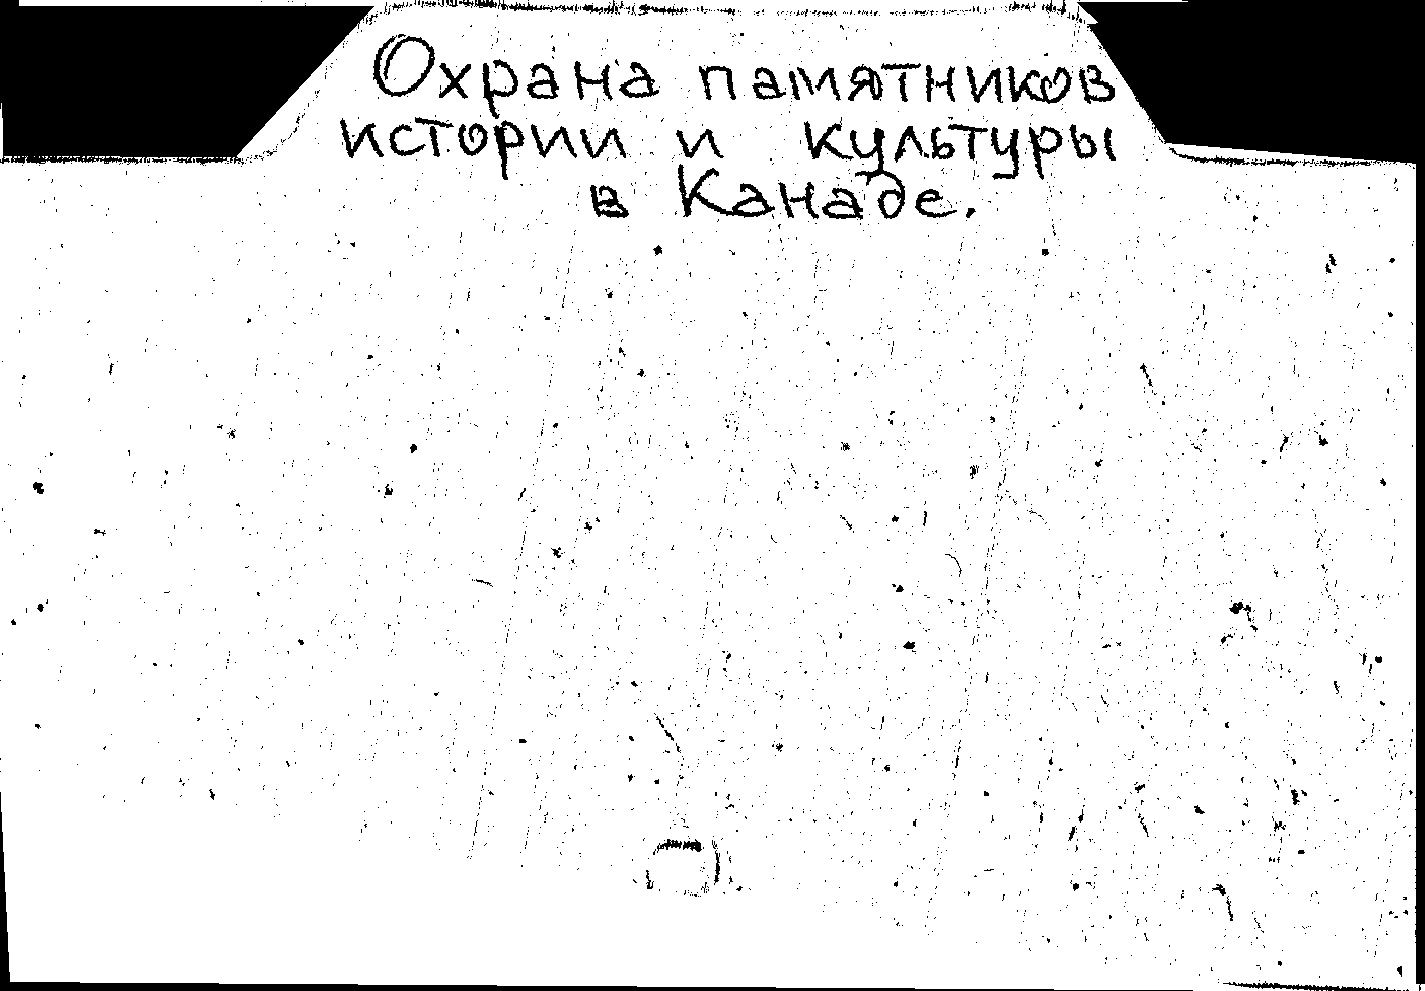 Охрана памятников
истории и культуры
в Канаде.